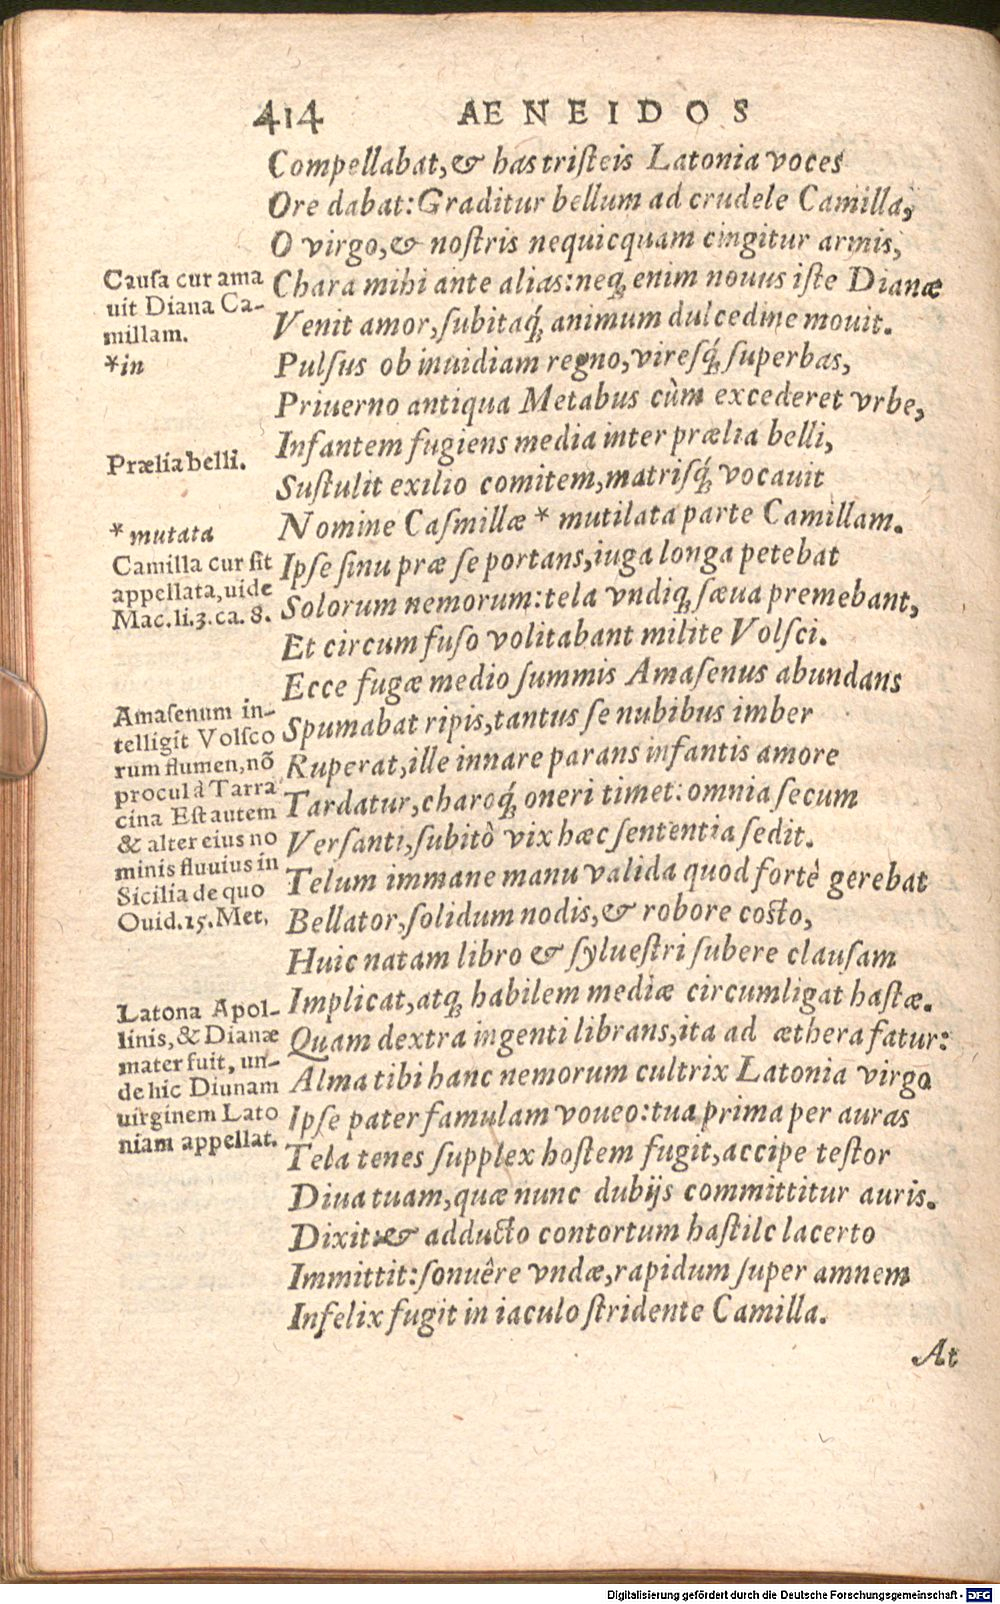 414 AENEIDOS
Compellabat, & has tristeis Latonia voces
Ore dabat: Graditur bellum ad crudele Camilla,
O virgo, & nostris nequicquam cingitur armis,
Chara mihi ante alias: neq; enim nouus iste Dianæ
Venit amor, subitaq́; animum dulcedine mouit.
Pulsus ob inuidiam regno, viresq́; superbas,
Priuerno antiqua Metabus cùm excederet vrbe,
Infantem fugiens media inter prælia belli,
Sustulit exilio comitem, matrisq́; vocauit
Nomine Casmillæ * mutilata parte Camillam.
Ipse sinu præ se portans, iuga longa petebat
Solorum nemorum: tela vndiq; sæua premebant,
Et circumfuso volitabant milite Volsci.
Ecce fugæ medio summis Amasenus abundans
Spumabat ripis, tantus se nubibus imber
Ruperat, ille innare parans infantis amore
Tardatur, charoq́; oneri timet: omnia secum
Versanti, subitò vix hæc sententia sedit.
Telum immane manu valida quod fortè gerebat
Bellator, solidum nodis, & robore cocto,
Huic natam libro & syluestri subere clausam
Implicat, atq; habilem mediæ circumligat hastæ.
Quam dextra ingenti librans, ita ad æthera fatur:
Alma tibi hanc nemorum cultrix Latonia virgo
Ipse pater famulam voueo: tua prima per auras
Tela tenes supplex hostem fugit, accipe testor
Diua tuam, quæ nunc dubijs committitur auris.
Dixit: & adducto contortum hastile lacerto
Immittit: sonuêre vndæ, rapidum super amnem
Infelix fugit in iaculo stridente Camilla.
At
Causa cur ama
uit Diana Ca-
millam.
*in
Prælia belli.
* mutata
Camilla cur sit
appellata, uide
Mac. li. 3. ca. 8.
Amasenum in-
telligit Volsco
rum flumen, nõ
procul à Tarra
cina Est autem
& alter eius no
minis fluuius in
Sicilia de quo
Ouid. 15. Met.
Latona Apol-
linis, & Dianæ
mater fuit, un-
de hic Diunam
uirginem Lato
niam appellat.
Digitalisierung gefördert durch die Deutsche Forschungsgemeinschaft - DFG